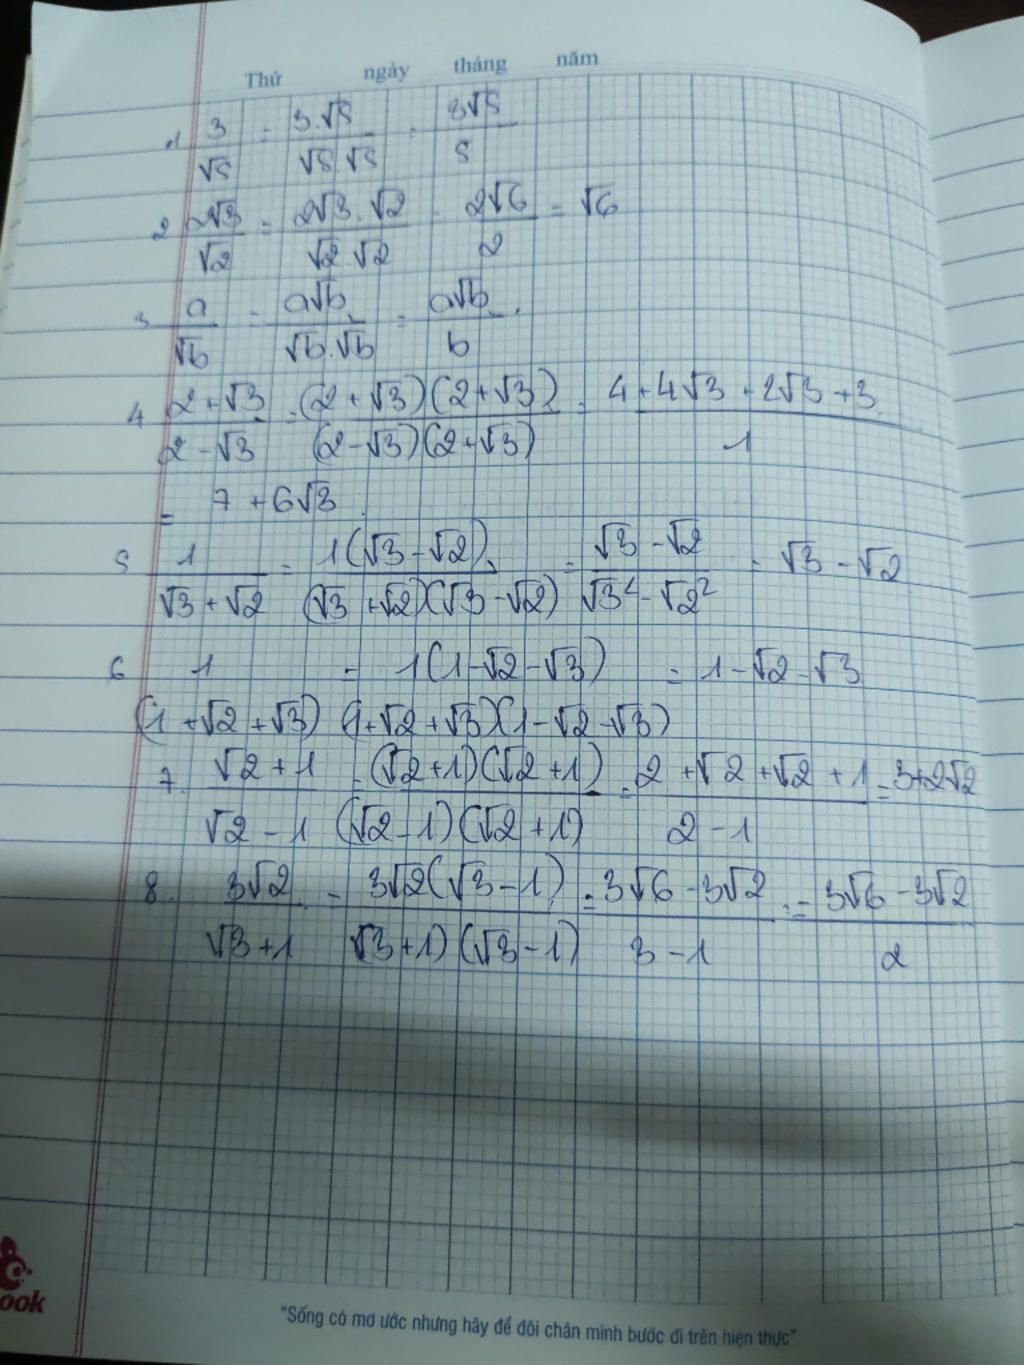 Thứ ngày tháng năm
1 3/√5 = 3.√5/√5.√5 = 3√5/5
2 2√3/√2 = 2√3.√2/√2.√2 = 2√6/2 = √6
3 a/√b = a√b/√b.√b = a√b/b.
4 2+√3/2-√3 = (2+√3)(2+√3)/(2-√3)(2+√3) = 4+4√3+2√3+3/1
= 7+6√3.
5 1/√3+√2 = 1(√3-√2)/(√3+√2)(√3-√2) = √3-√2/√3²-√2² = √3-√2
6 1/(1+√2+√3) = 1(1-√2-√3)/(1+√2+√3)(1-√2-√3) = 1-√2-√3
7. √2+1/√2-1 = (√2+1)(√2+1)/(√2-1)(√2+1) = 2+√2+√2+1/2-1 = 3+2√2
8. 3√2/√3+1 = 3√2(√3-1)/√3+1)(√3-1) = 3√6-3√2/3-1 = 3√6-3√2/2
ook
"Sống có mơ ước nhưng hãy để đôi chân mình bước đi trên hiện thực".